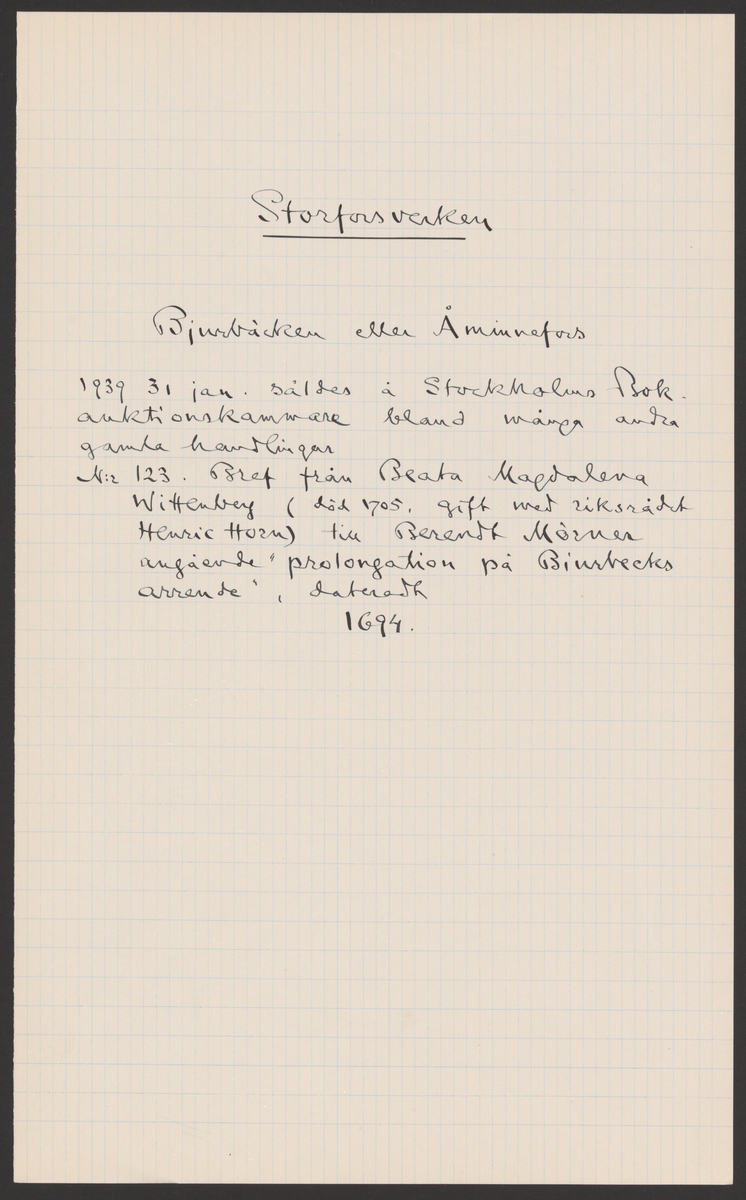 Storforsverken
Bjurbäcken eller Åminnefors
1939 31 jan. såldes å Stockholms Bok-
auktionskammare bland många andra
gamla handlingar
N:r 123. Bref från Beata Magdalena
Wittenberg (död 1705, gift med riksrådet
Henric Horn) till Berendt Mörner
angående "prolongation på Biurbecks
arrende", dateradt
1694.